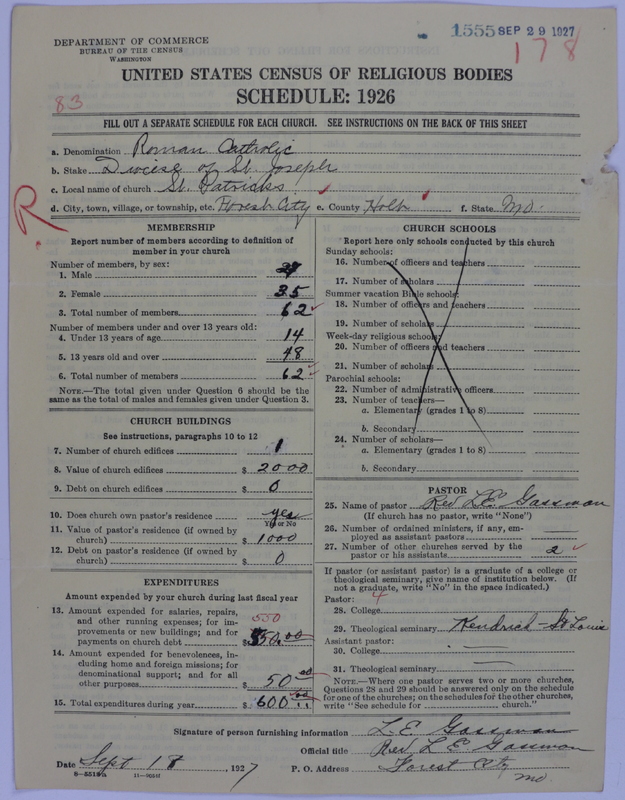 1555 SEP 29 1927
178
DEPARTMENT OF COMMERCE
BUREAU OF THE CENSUS
WASHINGTON
UNITED STATES CENSUS OF RELIGIOUS BODIES
83
SCHEDULE: 1926
FILL OUT A SEPARATE SCHEDULE FOR EACH CHURCH. SEE INSTRUCTIONS ON THE BACK OF THIS SHEET
a. Denomination Roman Catholic
b. Stake Diocise of St. Joseph
c. Local name of church St. Patricks
d. City, town, village, or township, etc. Forest City e. County Holt f. State Mo.
R.
MEMBERSHIP
Report number of members according to definition of
member in your church
Number of members, by sex:
1. Male 27
2. Female 35
3. Total number of members 62
Number of members under and over 13 years old:
4. Under 13 years of age 14
5. 13 years old and over 48
6. Total number of members 62
NOTE.—The total given under Question 6 should be the
same as the total of males and females given under Question 3.
CHURCH BUILDINGS
See instructions, paragraphs 10 to 12
7. Number of church edifices 1
8. Value of church edifices $ 2000
9. Debt on church edifices $ 0
10. Does church own pastor's residence yes
Yes or No
11. Value of pastor's residence (if owned by
church) $ 1000
12. Debt on pastor's residence (if owned by
church) $ 0
EXPENDITURES
Amount expended by your church during last fiscal year
13. Amount expended for salaries, repairs,
and other running expenses; for im-
provements or new buildings; and for
payments on church debt $ 550.00
550
14. Amount expended for benevolences, in-
cluding home and foreign missions; for
denominational support; and for all
other purposes $ 50 00
15. Total expenditures during year $ 600 00
CHURCH SCHOOLS
Report here only schools conducted by this church
Sunday schools:
16. Number of officers and teachers
17. Number of scholars
Summer vacation Bible schools:
18. Number of officers and teachers
19. Number of scholars
Week-day religious schools:
20. Number of officers and teachers
21. Number of scholars
Parochial schools:
22. Number of administrative officers
23. Number of teachers—
a. Elementary (grades 1 to 8)
b. Secondary
24. Number of scholars—
a. Elementary (grades 1 to 8)
b. Secondary
PASTOR
25. Name of pastor Rev L E Gassman
(If church has no pastor, write "None")
26. Number of ordained ministers, if any, em-
ployed as assistant pastors
27. Number of other churches served by the
pastor or his assistants 2
If pastor (or assistant pastor) is a graduate of a college or
theological seminary, give name of institution below. (If
not a graduate, write "No" in the space indicated.)
Pastor: 4
28. College
29. Theological seminary Kendrick - St Louis
Assistant pastor:
30. College
31. Theological seminary
NOTE.—Where one pastor serves two or more churches,
Questions 28 and 29 should be answered only on the schedule
for one of the churches; on the schedules for the other churches,
write "See schedule for church."
Signature of person furnishing information L E Gassman
Official title Rev L E Gassman
Date Sept 18, 1927 P. O. Address Forest City
Mo.